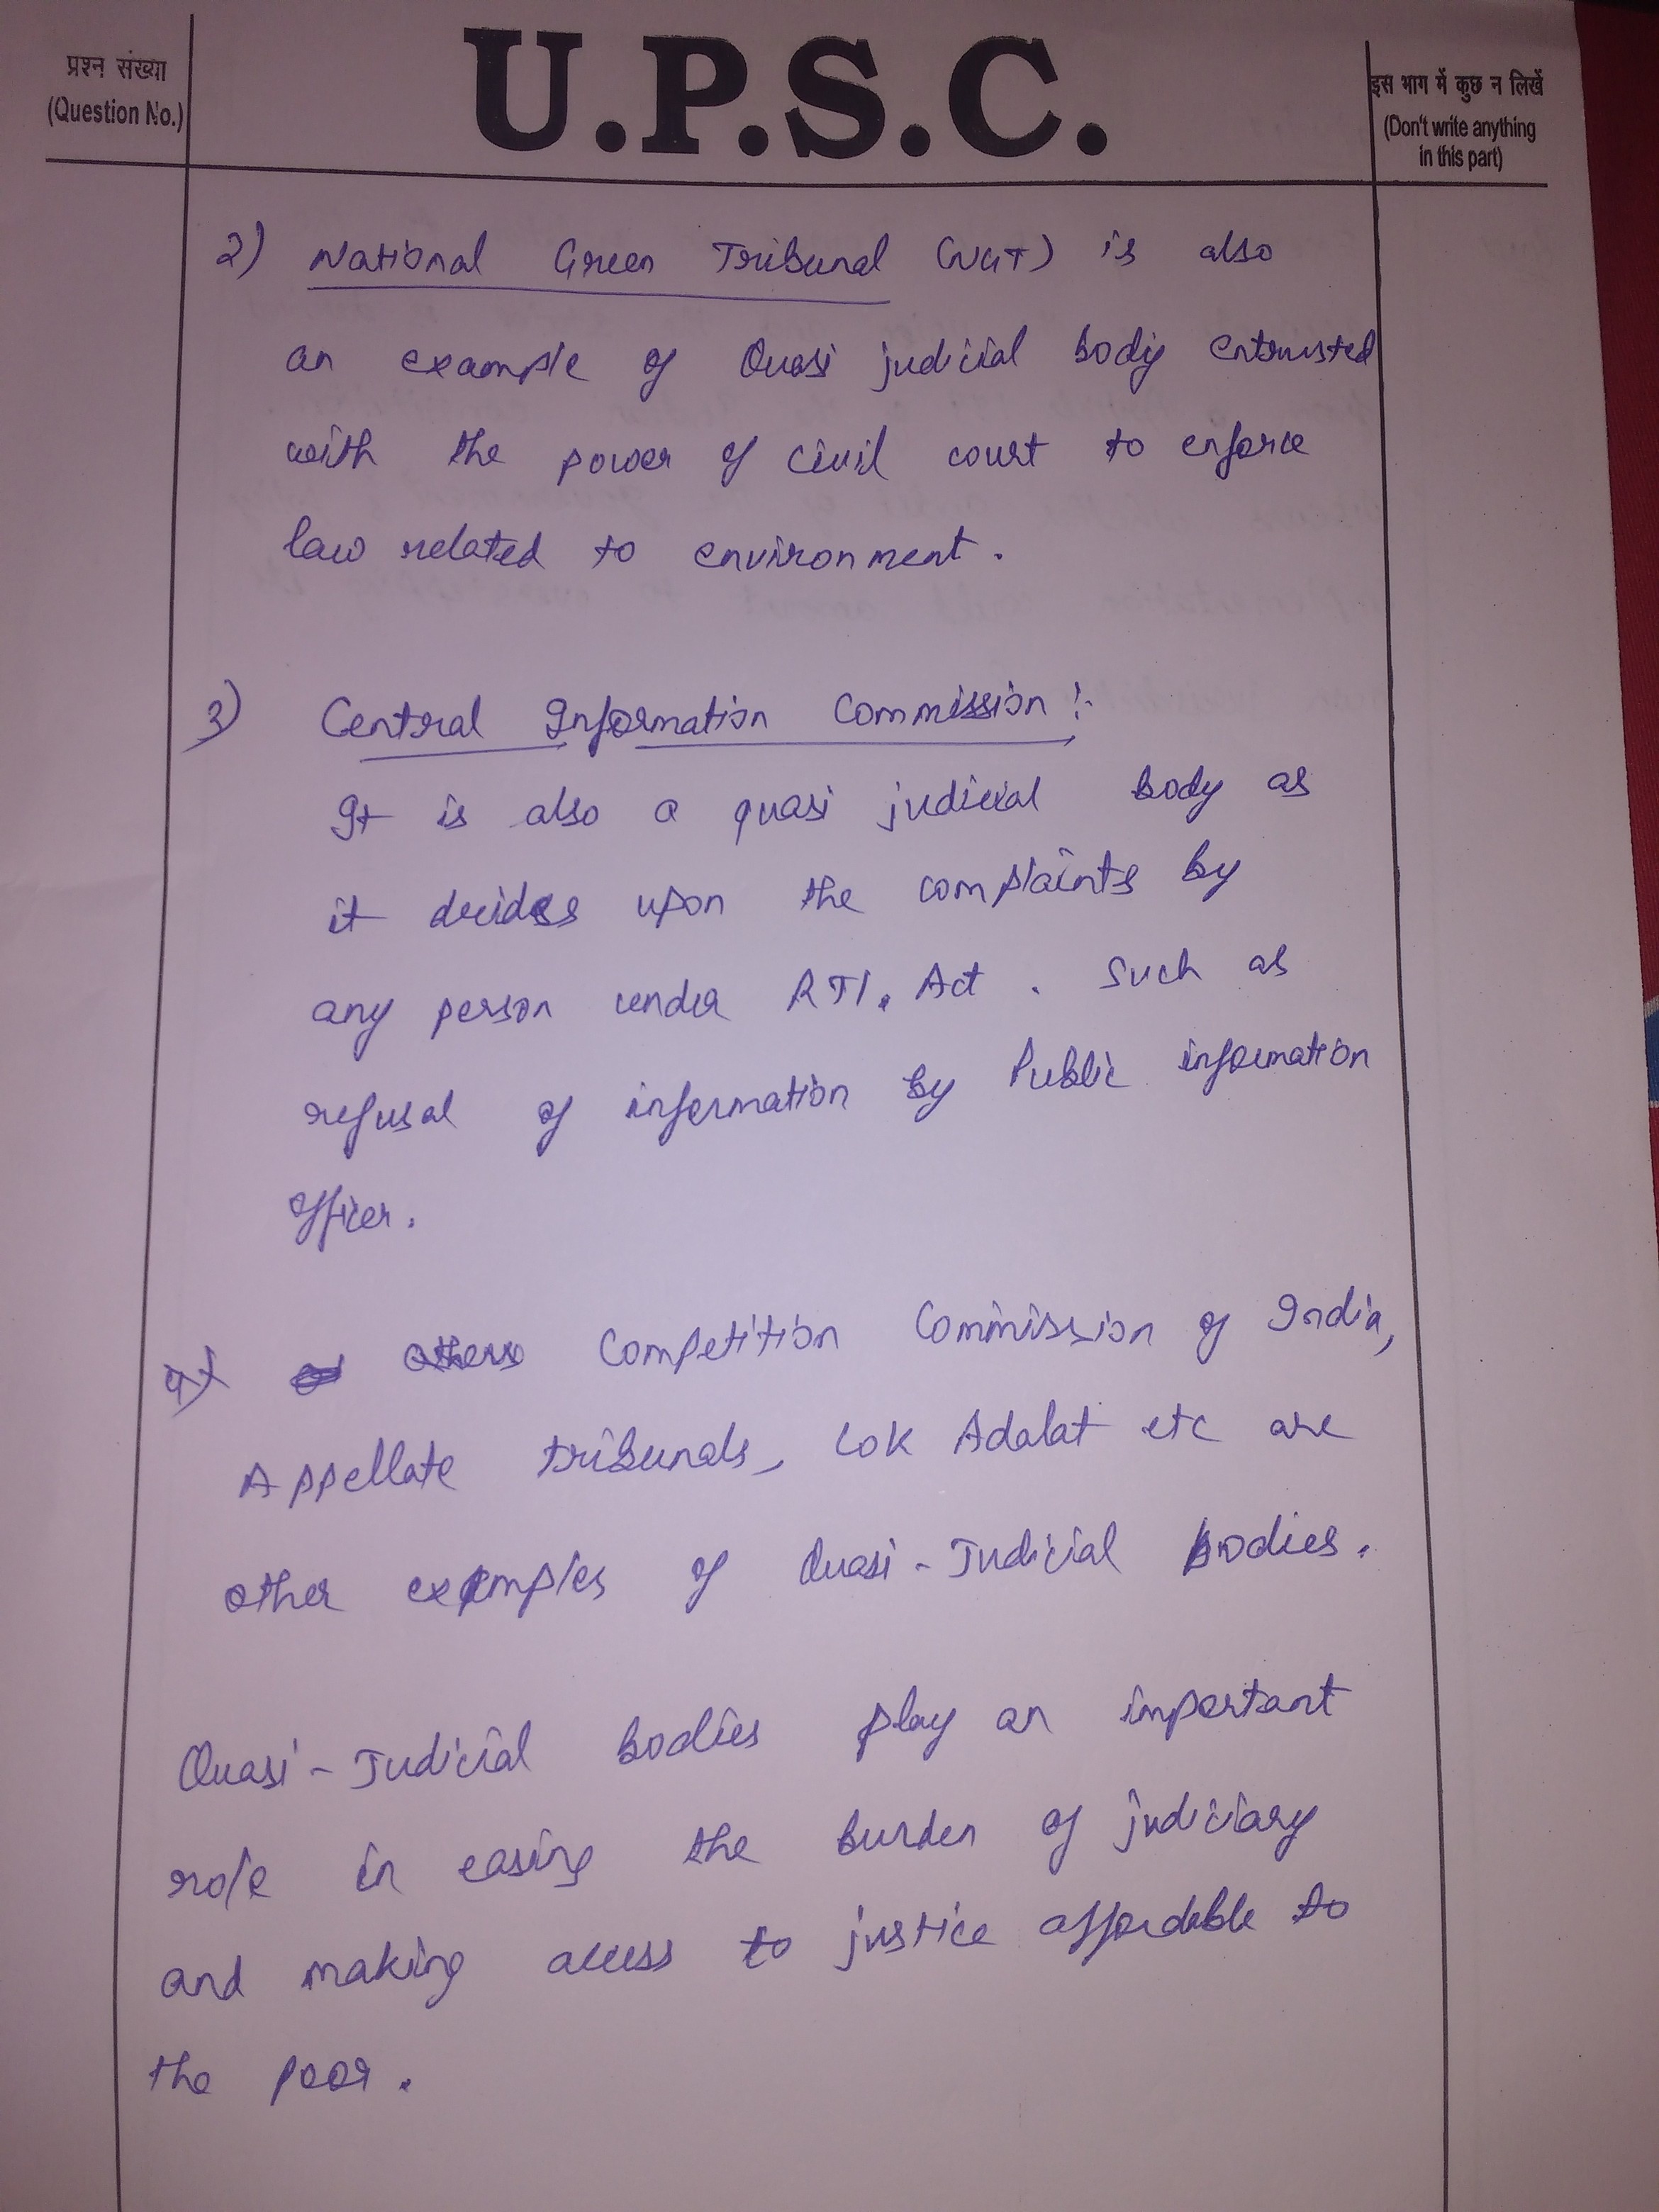 प्रश्न संख्या
(Question No.)
U.P.S.C.
इस भाग में कुछ न लिखें
(Don't write anything
in this part)
2) National Green Tribunal (NGT) is also
an example of Quasi judicial body entrusted
with the power of civil court to enforce
law related to environment.
3) Central Information Commission :-
It is also a quasi judicial body as
it decides upon the complaints by
any person under RTI. Act . Such as
refusal of information by Public information
officer.
4) others Competition Commission of India,
Appellate tribunals, Lok Adalat etc are
other examples of Quasi-Judicial bodies.
Quasi-Judicial bodies play an important
role in easing the burden of judiciary
and making access to justice affordable to
the poor.